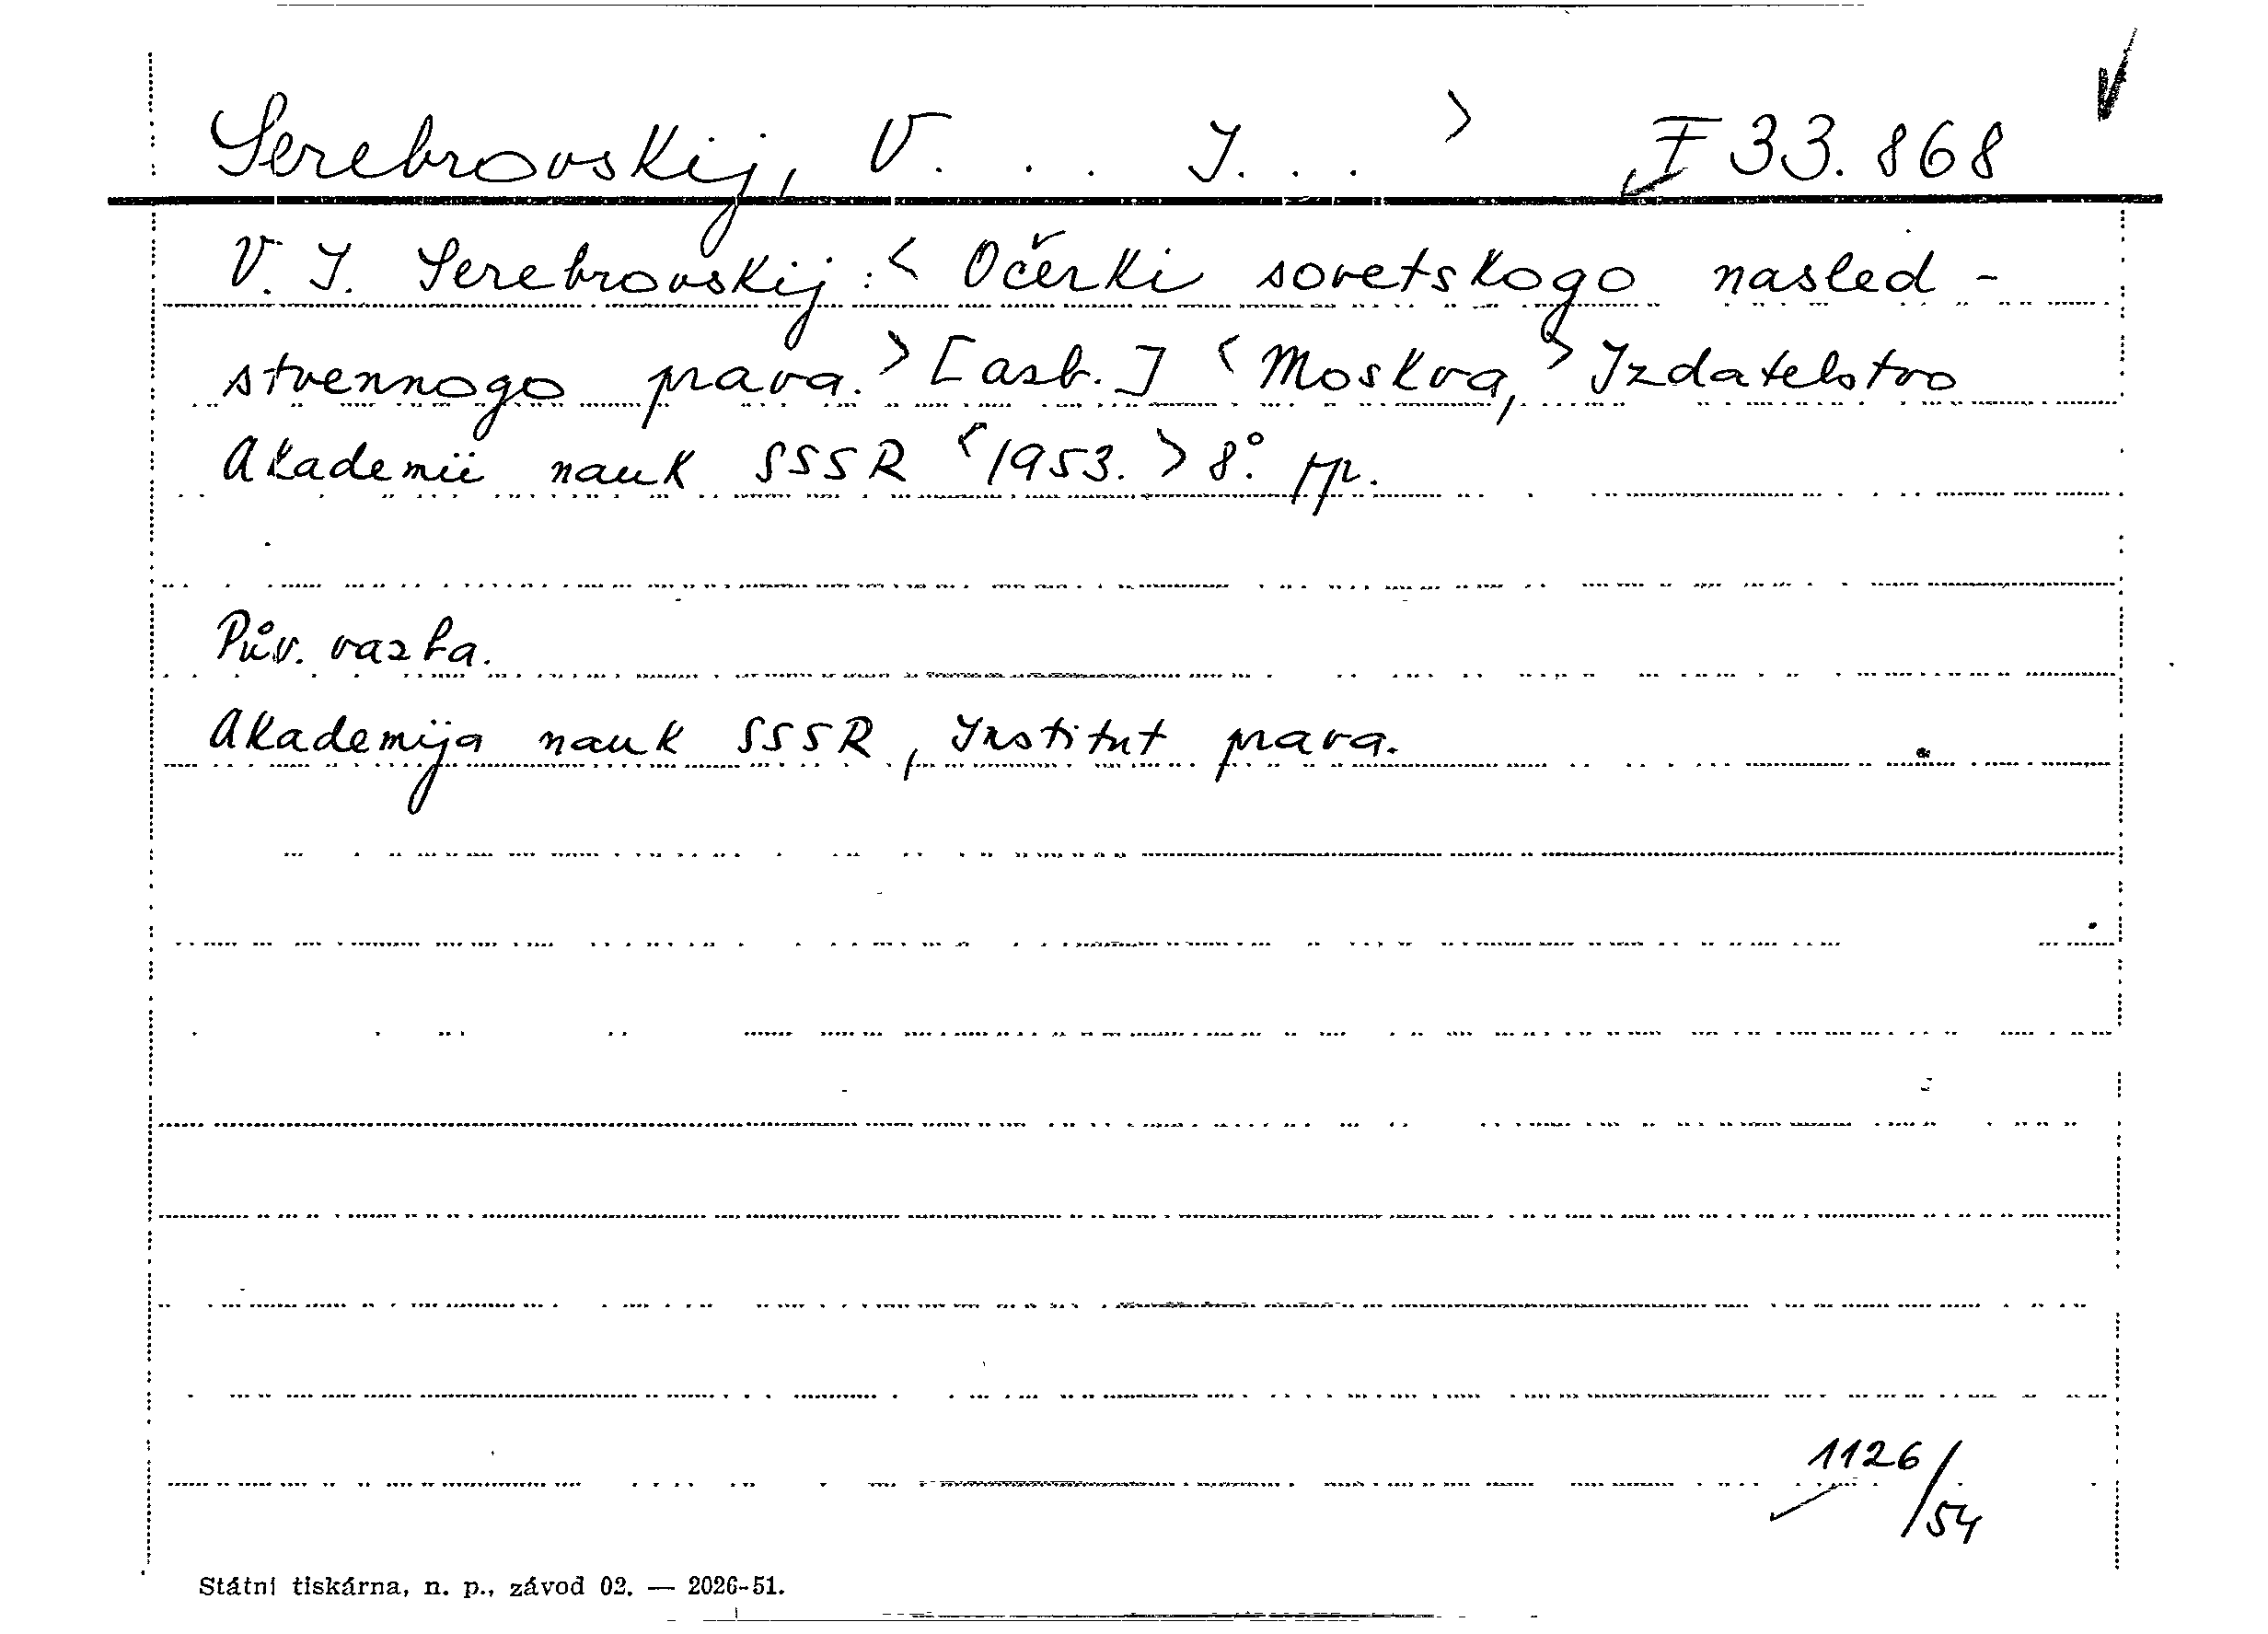 Serebrovskij, V. . . I. . . > I 33.868
V. I. Serebrovskij: < Očerki sovetskogo nasled-
stvennogo prava. > [azb.] < Moskva, > Izdatelstvo
Akademii nauk SSSR < 1953. > 8°. pp.
Pův. vazba.
Akademija nauk SSSR, Institut prava.
1126/54
Státní tiskárna, n. p., závod 02. — 2026-51.